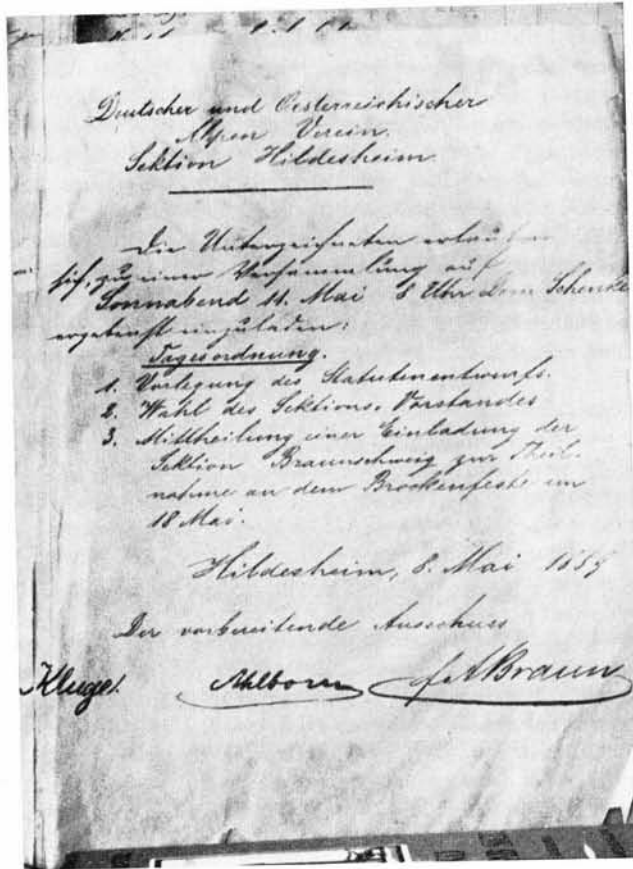 Deutscher und Oesterreichischer
Alpen Verein.
Sektion Hildesheim.
Die Unterzeichneten erlauben
sich, zu einer Versammlung auf
Sonnabend 11. Mai 8 Uhr Dom Schenke
ergebenst einzuladen:
Tagesordnung.
1. Vorlegung des Statutenentwurfs.
2. Wahl des Sektions-Vorstandes
3. Mittheilung einer Einladung der
Sektion Braunschweig zur Theil-
nahme an dem Brockenfeste am
18 Mai.
Hildesheim, 8. Mai 1889
Der vorbereitende Ausschuss
Kluge. Ahlborn Braun